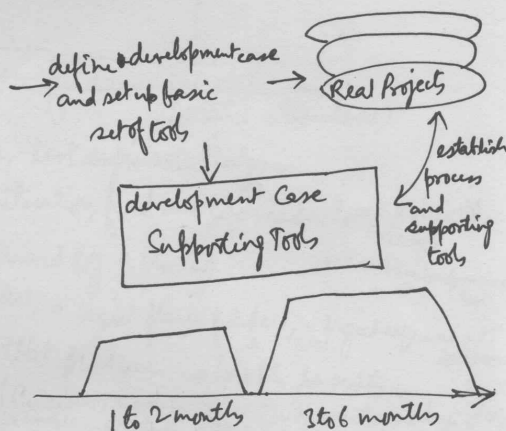 define development case
and set up basic
set of tools
Real Projects
establish
process
and
supporting
tools
development Case
Supporting Tools
1 to 2 months
3 to 6 months